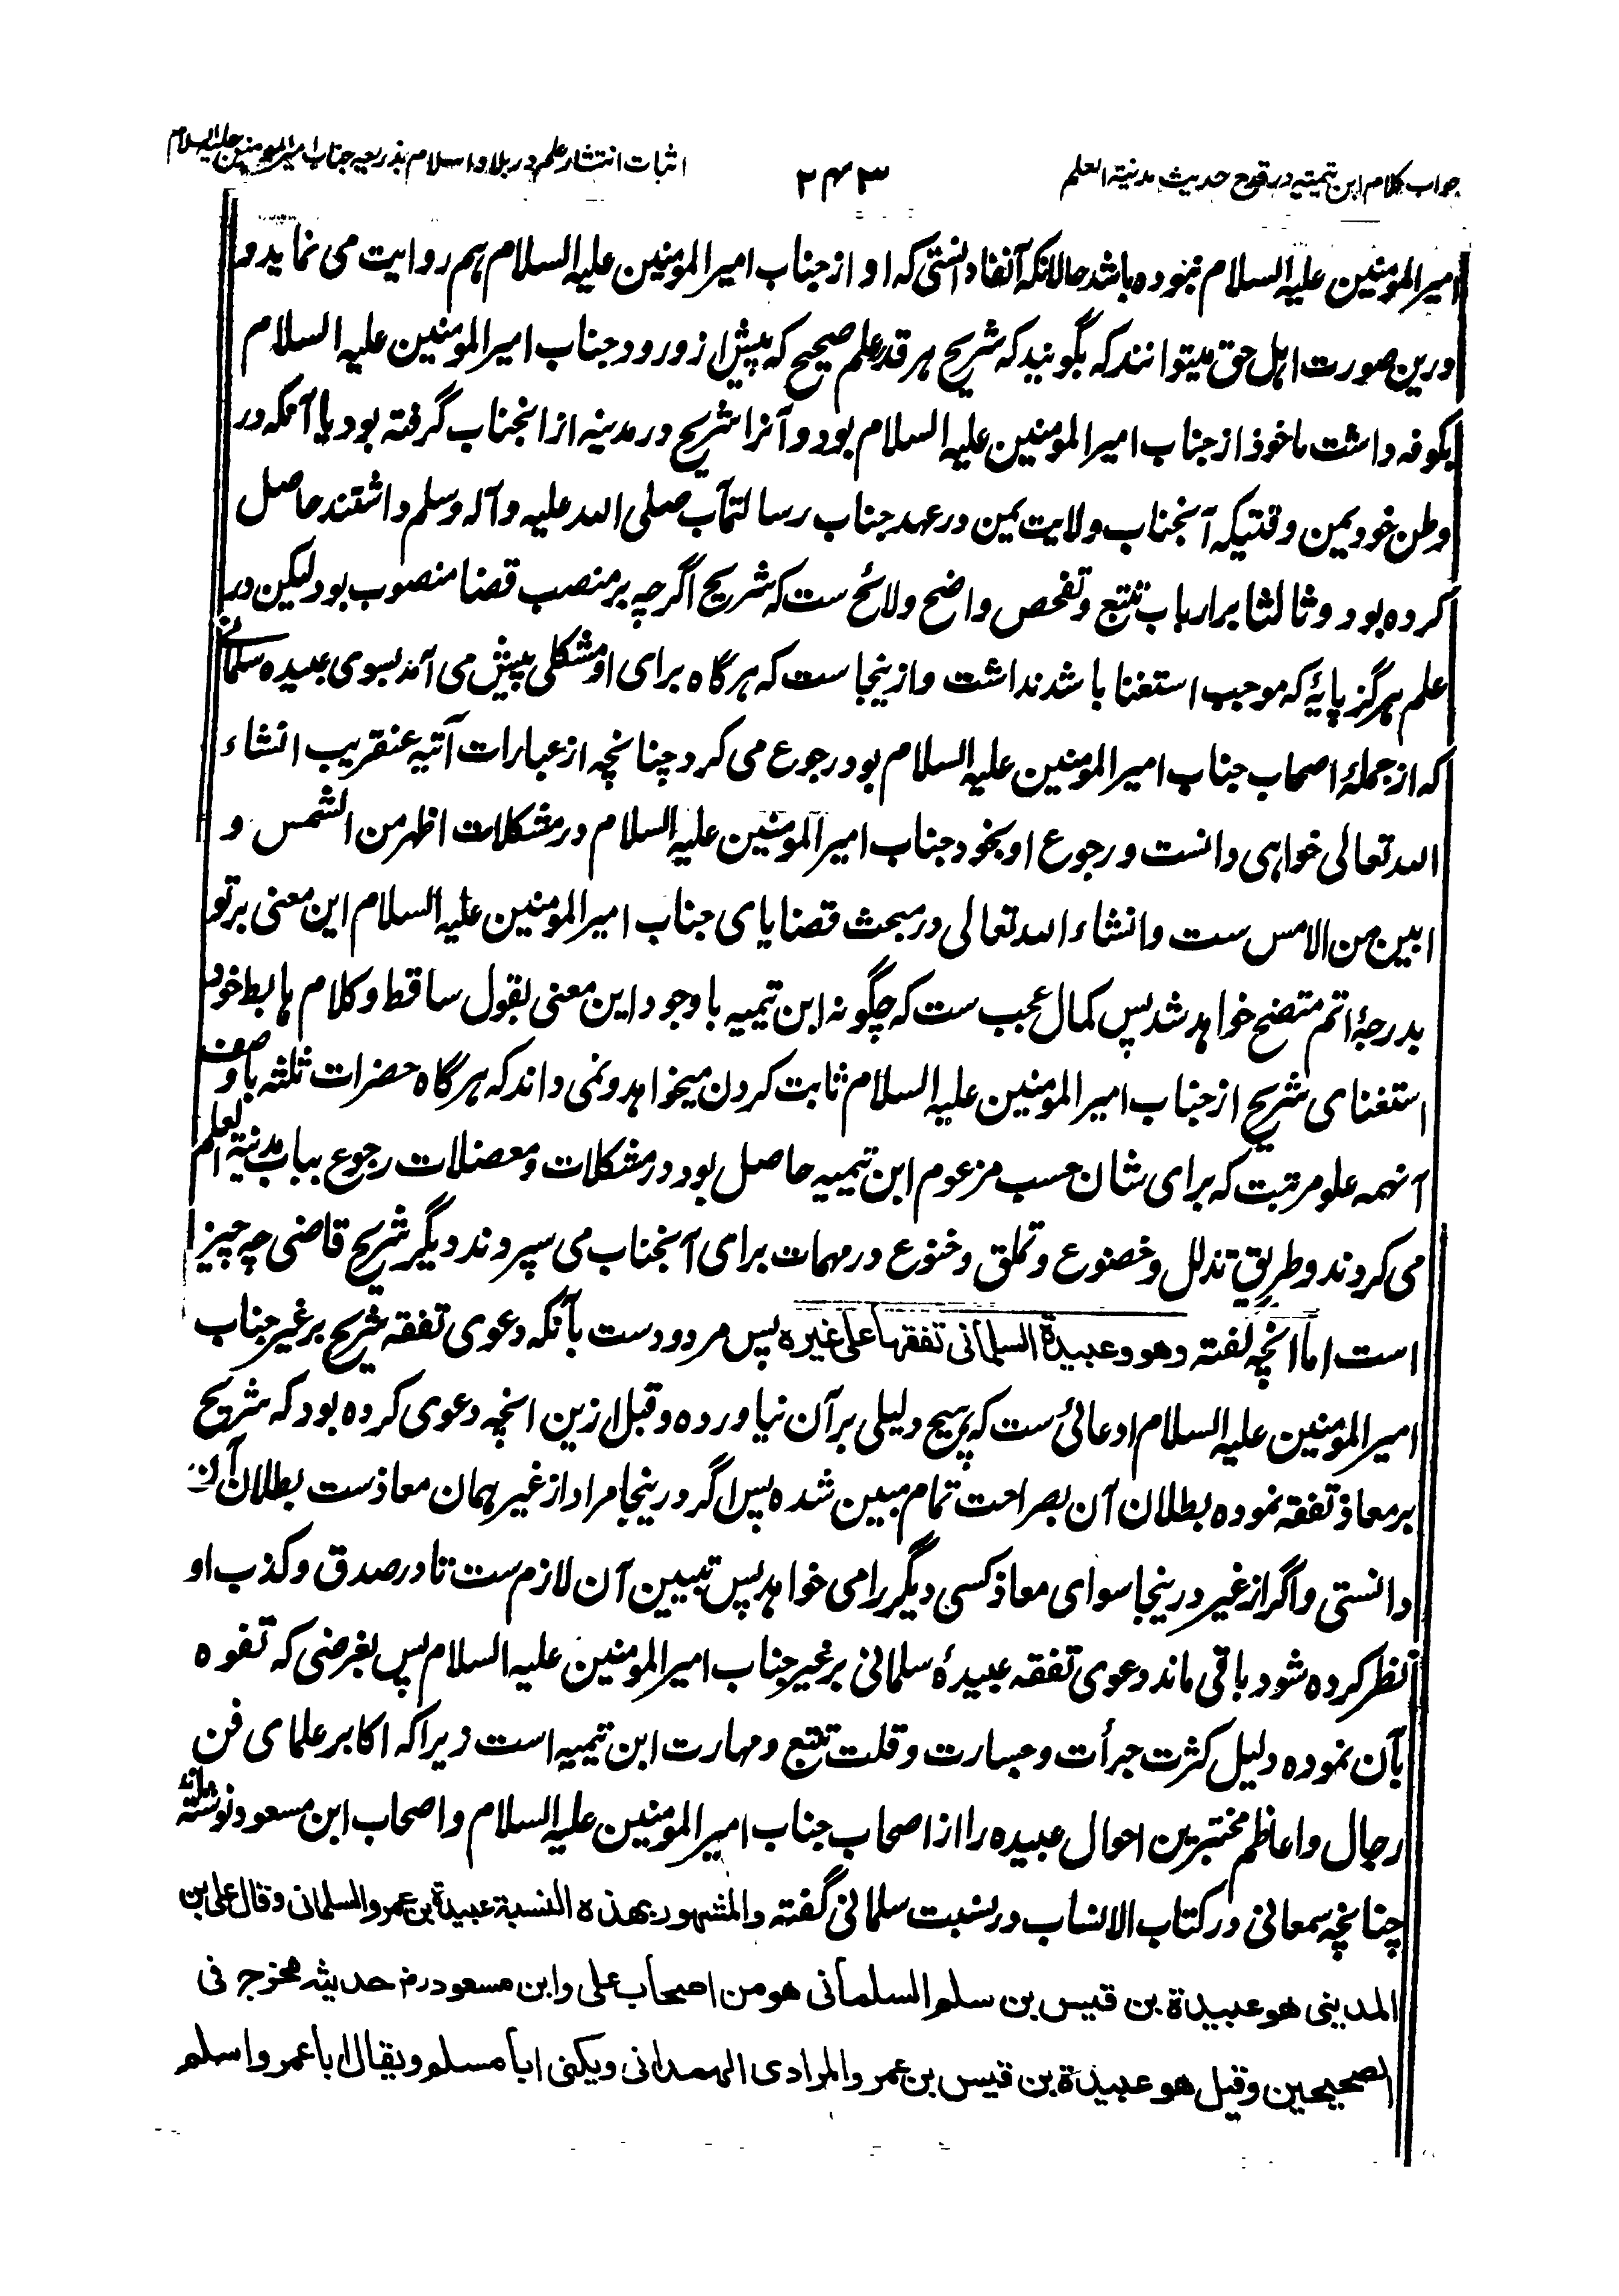 جواب کلام ابن تیمیه در قدح حدیث مدینة العلم
۲۴۳
اثبات انتشار علم در بلاد اسلام بذریعه جناب امیرالمومنین علیه السلام
امیرالمومنین علیه السلام ننموده باشد حالانکه آنفا دانستی که او از جناب امیرالمومنین علیه السلام هم روایت می نماید و
درین صورت اهل حق میتوانند که بگویند که شریح هر قدر علم صحیح که پیش از ورود جناب امیرالمومنین علیه السلام
بکوفه داشت ماخوذ از جناب امیرالمومنین علیه السلام بود و آنرا شریح در مدینه از انجناب گرفته بود یا آنکه در
وطن خود یمن وقتیکه آنجناب ولایت یمن در عهد جناب رسالتمآب صلی الله علیه وآله وسلم داشتند حاصل
کرده بود و ثالثا بر ارباب تتبع و تفحص واضح ولائح ست که شریح اگرچه بر منصب قضا منصوب بود لیکن در
علم هرگز پایۀ که موجب استغنا باشد نداشت و ازینجاست که هرگاه برای او مشکلی پیش می آمد بسوی عبیده سلمانی
که از جملۀ اصحاب جناب امیرالمومنین علیه السلام بود رجوع می کرد چنانچه از عبارات آتیه عنقریب انشاء
الله تعالی خواهی دانست و رجوع او بخود جناب امیرالمومنین علیه السلام در مشکلات اظهر من الشمس و
ابین من الامس ست وانشاء الله تعالی در مبحث قضایای جناب امیرالمومنین علیه السلام این معنی بر تو
بدرجۀ اتم متضح خواهد شد پس کمال عجب ست که چگونه ابن تیمیه با وجود این معنی بقول ساقط و کلام هابط خود
استغنای شریح از جناب امیرالمومنین علیه السلام ثابت کردن میخواهد و نمی داند که هرگاه حضرات ثلثه با وصف
آنهمه علو مرتبت که برای شان حسب مزعوم ابن تیمیه حاصل بود در مشکلات و معضلات رجوع بباب مدینة العلم
می کردند و طریق تذلل و خضوع و تملق و خنوع در مهمات برای آنجناب می سپردند دیگر شریح قاضی چه چیز
است اما انچه گفته وهو وعبیدة السلمانی تفقها علی غیره پس مردودست بآنکه دعوی تفقه شریح بر غیر جناب
امیرالمومنین علیه السلام ادعائی ست که هیچ دلیلی بر آن نیاورده و قبل ازین انچه دعوی کرده بود که شریح
بر معاذ تفقه نموده بطلان آن بصراحت تمام مبین شده پس اگر درینجا مراد از غیر همان معاذست بطلان آن
دانستی و اگر از غیر درینجا سوای معاذ کسی دیگر را می خواهد پس تبیین آن لازم ست تا در صدق و کذب او
نظر کرده شود باقی ماند دعوی تفقه عبیدۀ سلمانی بر غیر جناب امیرالمومنین علیه السلام پس بغرضی که تفوه
بآن نموده دلیل کثرت جرأت و جسارت و قلت تتبع و مهارت ابن تیمیه است زیراکه اکابر علمای فن
رجال و اعاظم مختبرین احوال عبیده را از اصحاب جناب امیرالمومنین علیه السلام و اصحاب ابن مسعود نوشته اند
چنانچه سمعانی در کتاب الانساب در نسبت سلمانی گفته والمشهور بهذه النسبة عبیدة بن عمرو السلمانی وقال علی بن
المدینی هو عبیدة بن قیس بن سلم السلمانی هو من اصحاب علی وابن مسعود رض حدیثه مخرج فی
الصحیحین وقیل هو عبیدة بن قیس بن عمرو المرادی الهمدانی ویکنی ابا مسلم ویقال ابا عمرو اسلم